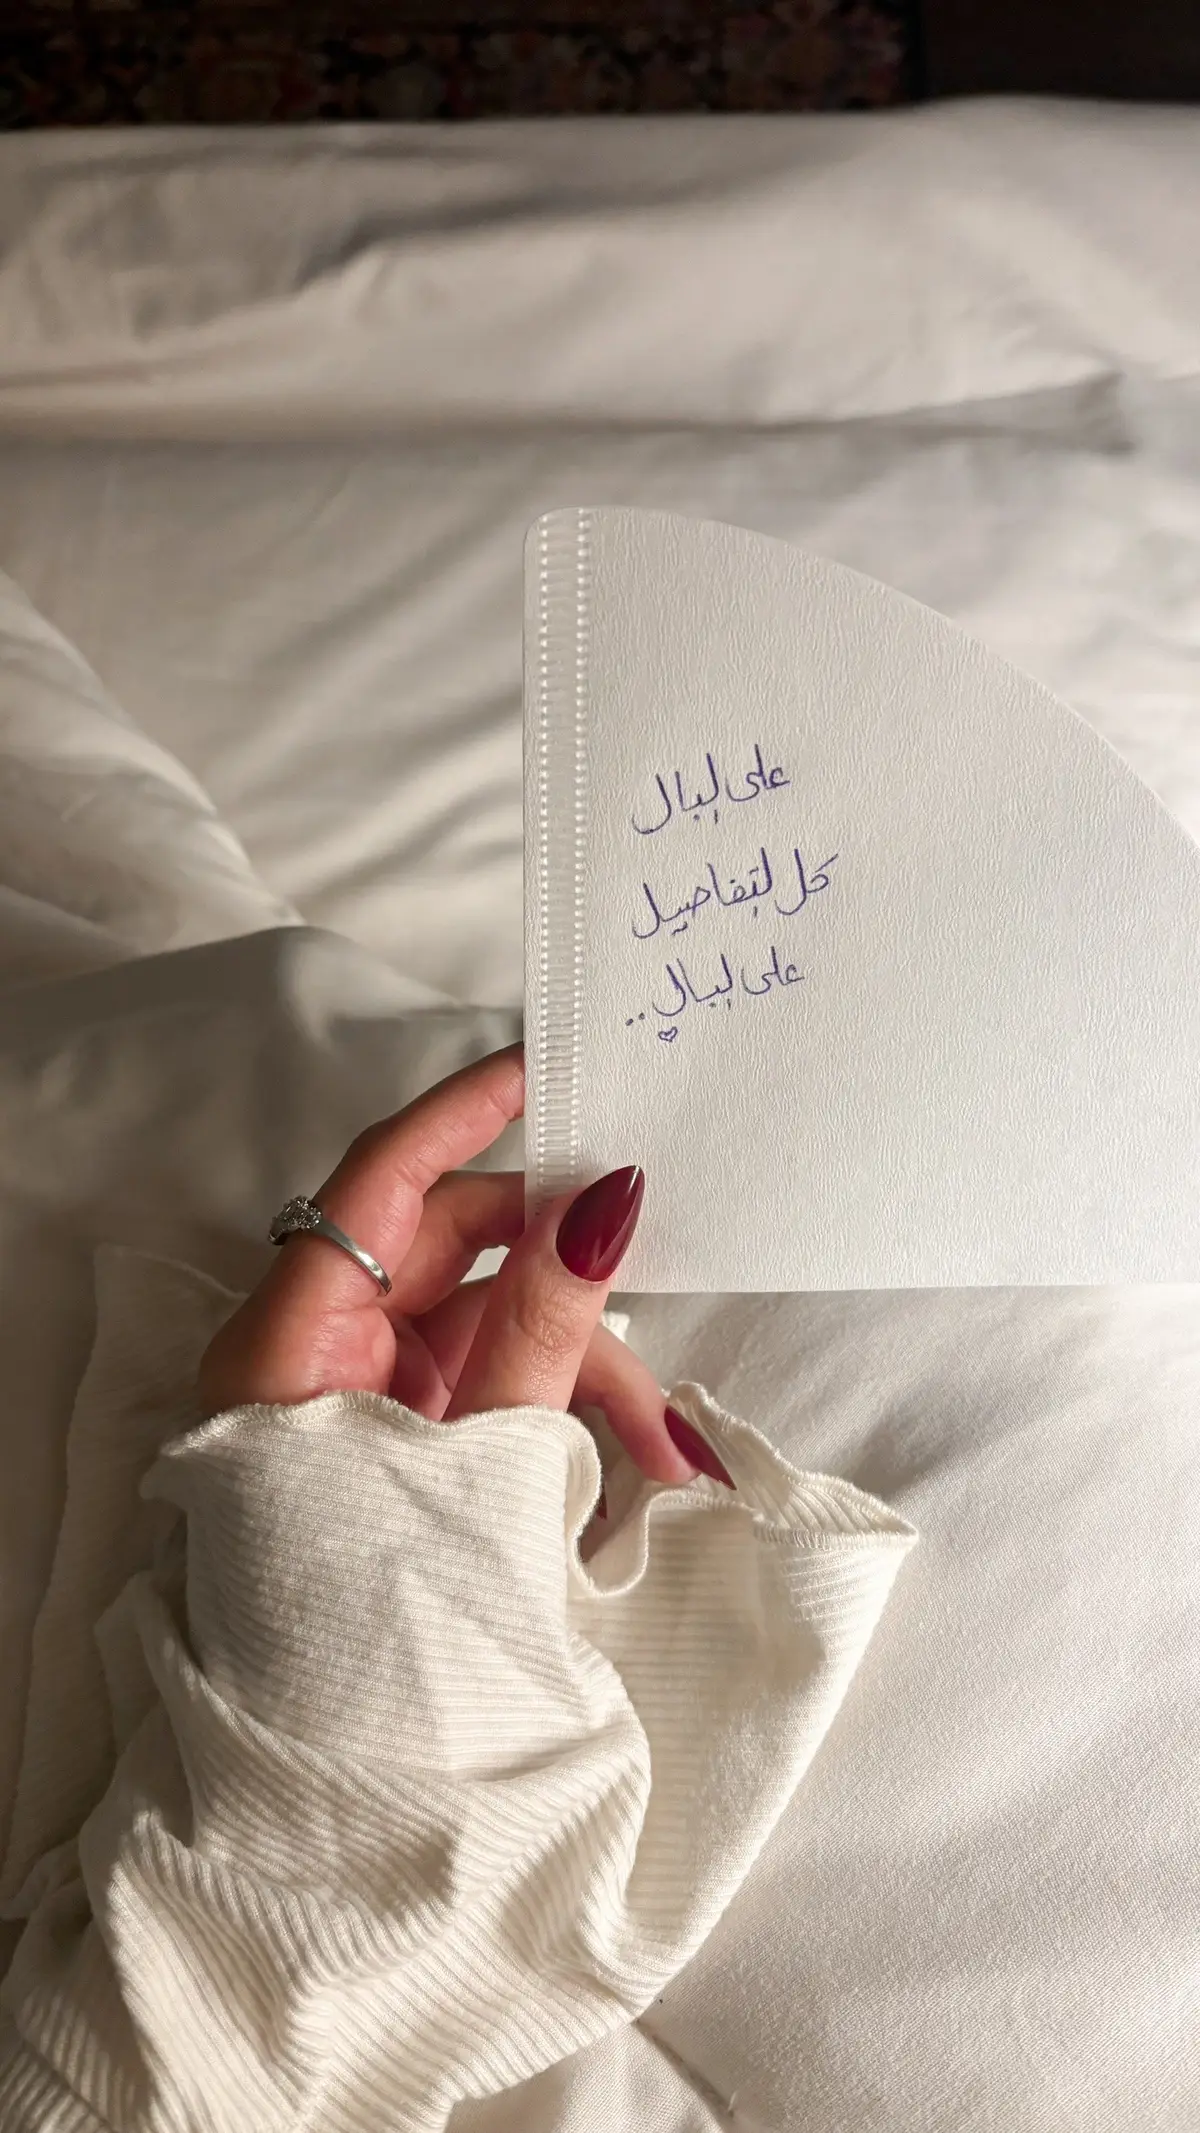 على لبال
كل لتفاصيل
على لبال..